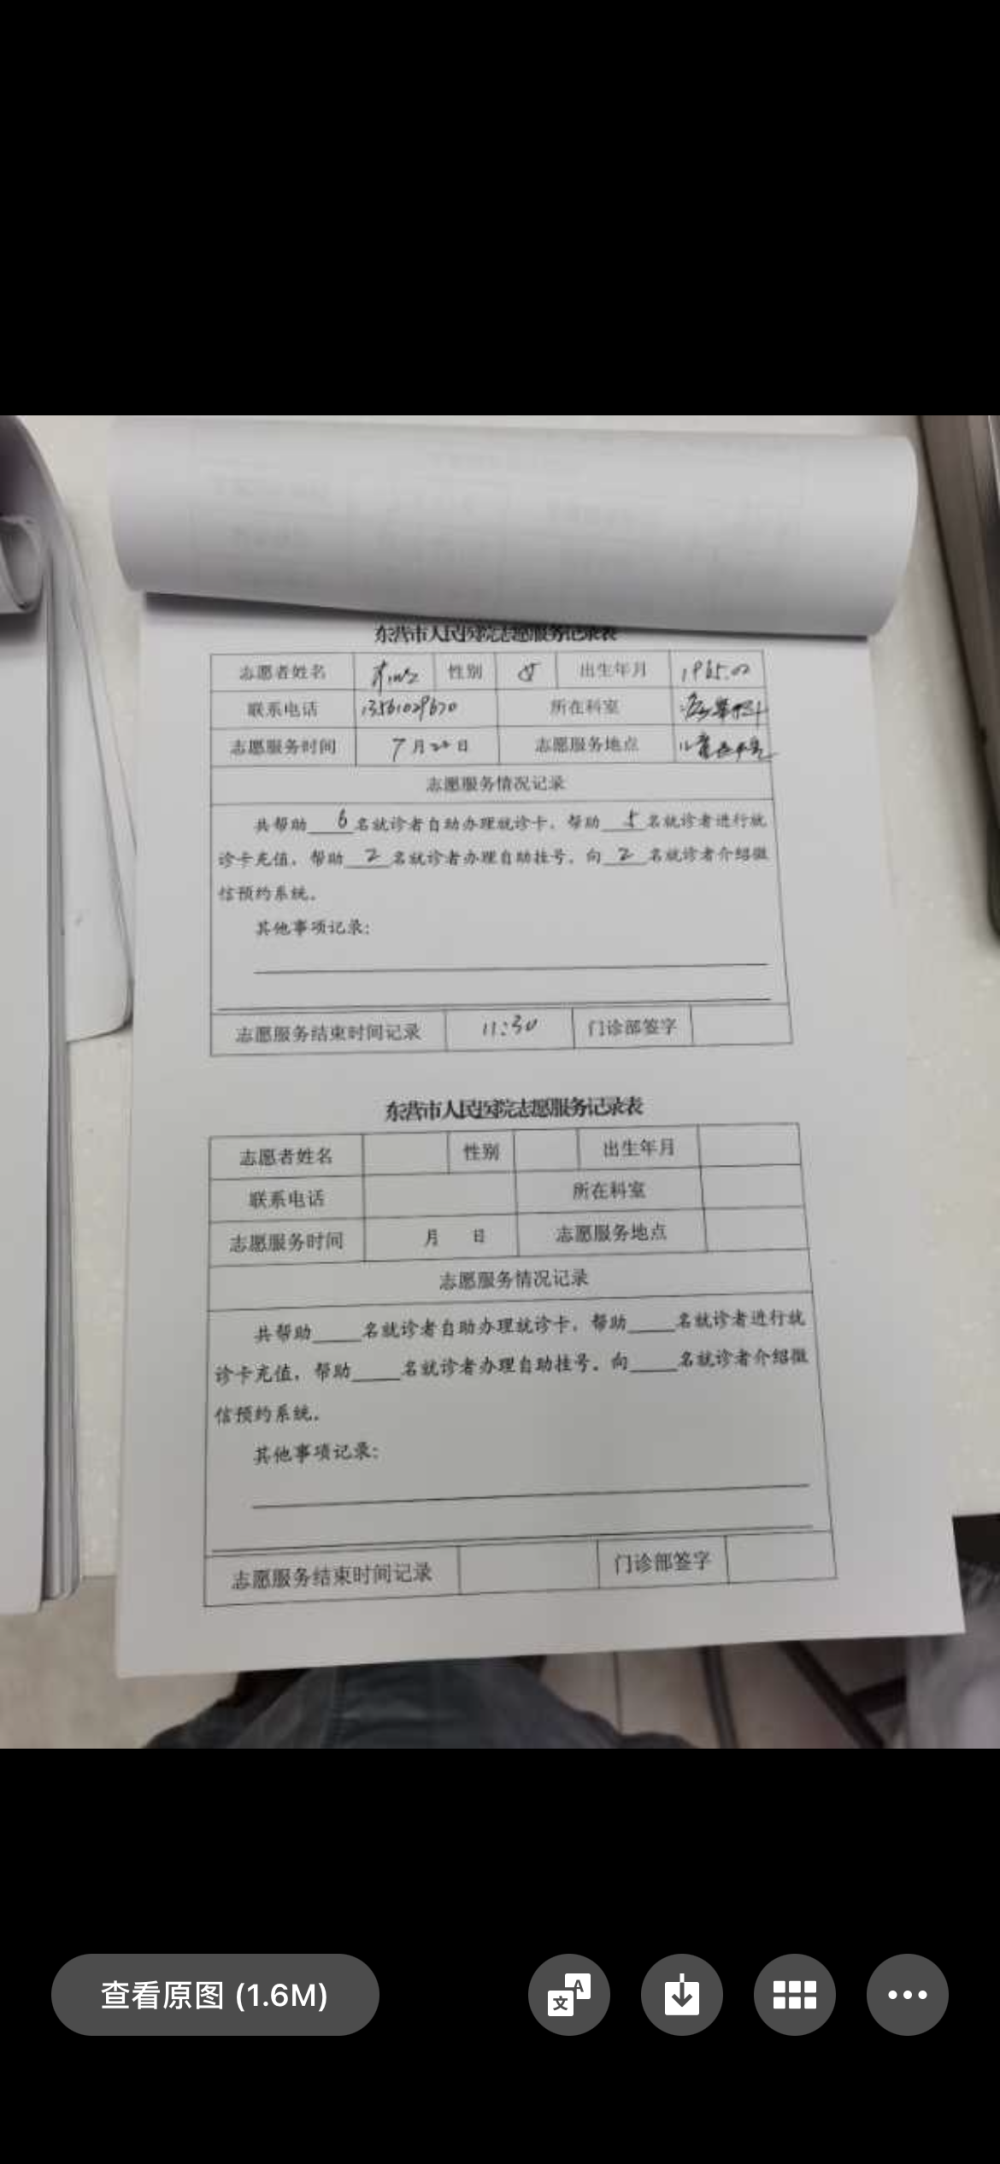 东营市人民医院志愿服务记录表
志愿者姓名 性别 女 出生年月 1965.02
联系电话 13561029670 所在科室
志愿服务时间 7月20日 志愿服务地点
志愿服务情况记录
共帮助6名就诊者自助办理就诊卡，帮助5名就诊者进行就
诊卡充值，帮助2名就诊者办理自助挂号，向2名就诊者介绍微
信预约系统。
其他事项记录：
志愿服务结束时间记录 11:30 门诊部签字
东营市人民医院志愿服务记录表
志愿者姓名 性别 出生年月
联系电话 所在科室
志愿服务时间 月 日 志愿服务地点
志愿服务情况记录
共帮助____名就诊者自助办理就诊卡，帮助____名就诊者进行就
诊卡充值，帮助____名就诊者办理自助挂号，向____名就诊者介绍微
信预约系统。
其他事项记录：
志愿服务结束时间记录 门诊部签字
查看原图 (1.6M)